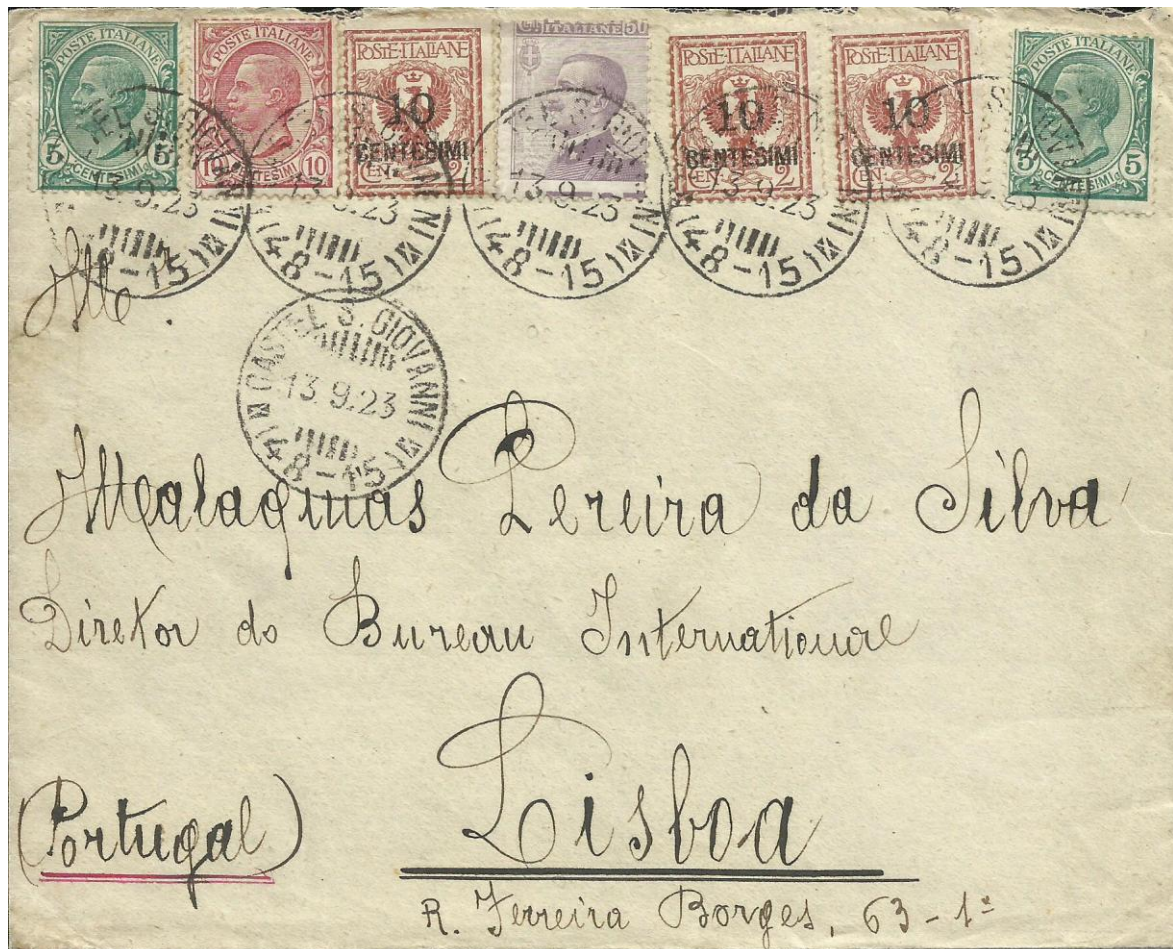 POSTE ITALIANE 5 CENTESIMI 5
POSTE ITALIANE 10 CENTESIMI 10
POSTE·ITALIANE 10 CENTESIMI CEN. 2
ITALIANE 50
POSTE·ITALIANE 10 CENTESIMI CEN. 2
POSTE·ITALIANE 10 CENTESIMI CEN. 2
POSTE ITALIANE 5 CENTESIMI 5
13.9.23
(48-15)
13.9.23
(48-15)
13.9.23
(48-15)
13.9.23
(48-15)
(48-15)
CASTEL S. GIOVANNI
13.9.23
(48-15)
Malaquias Pereira da Silva
Diretor do Bureau International
Lisboa
(Portugal)
R. Ferreira Borges, 63-1º